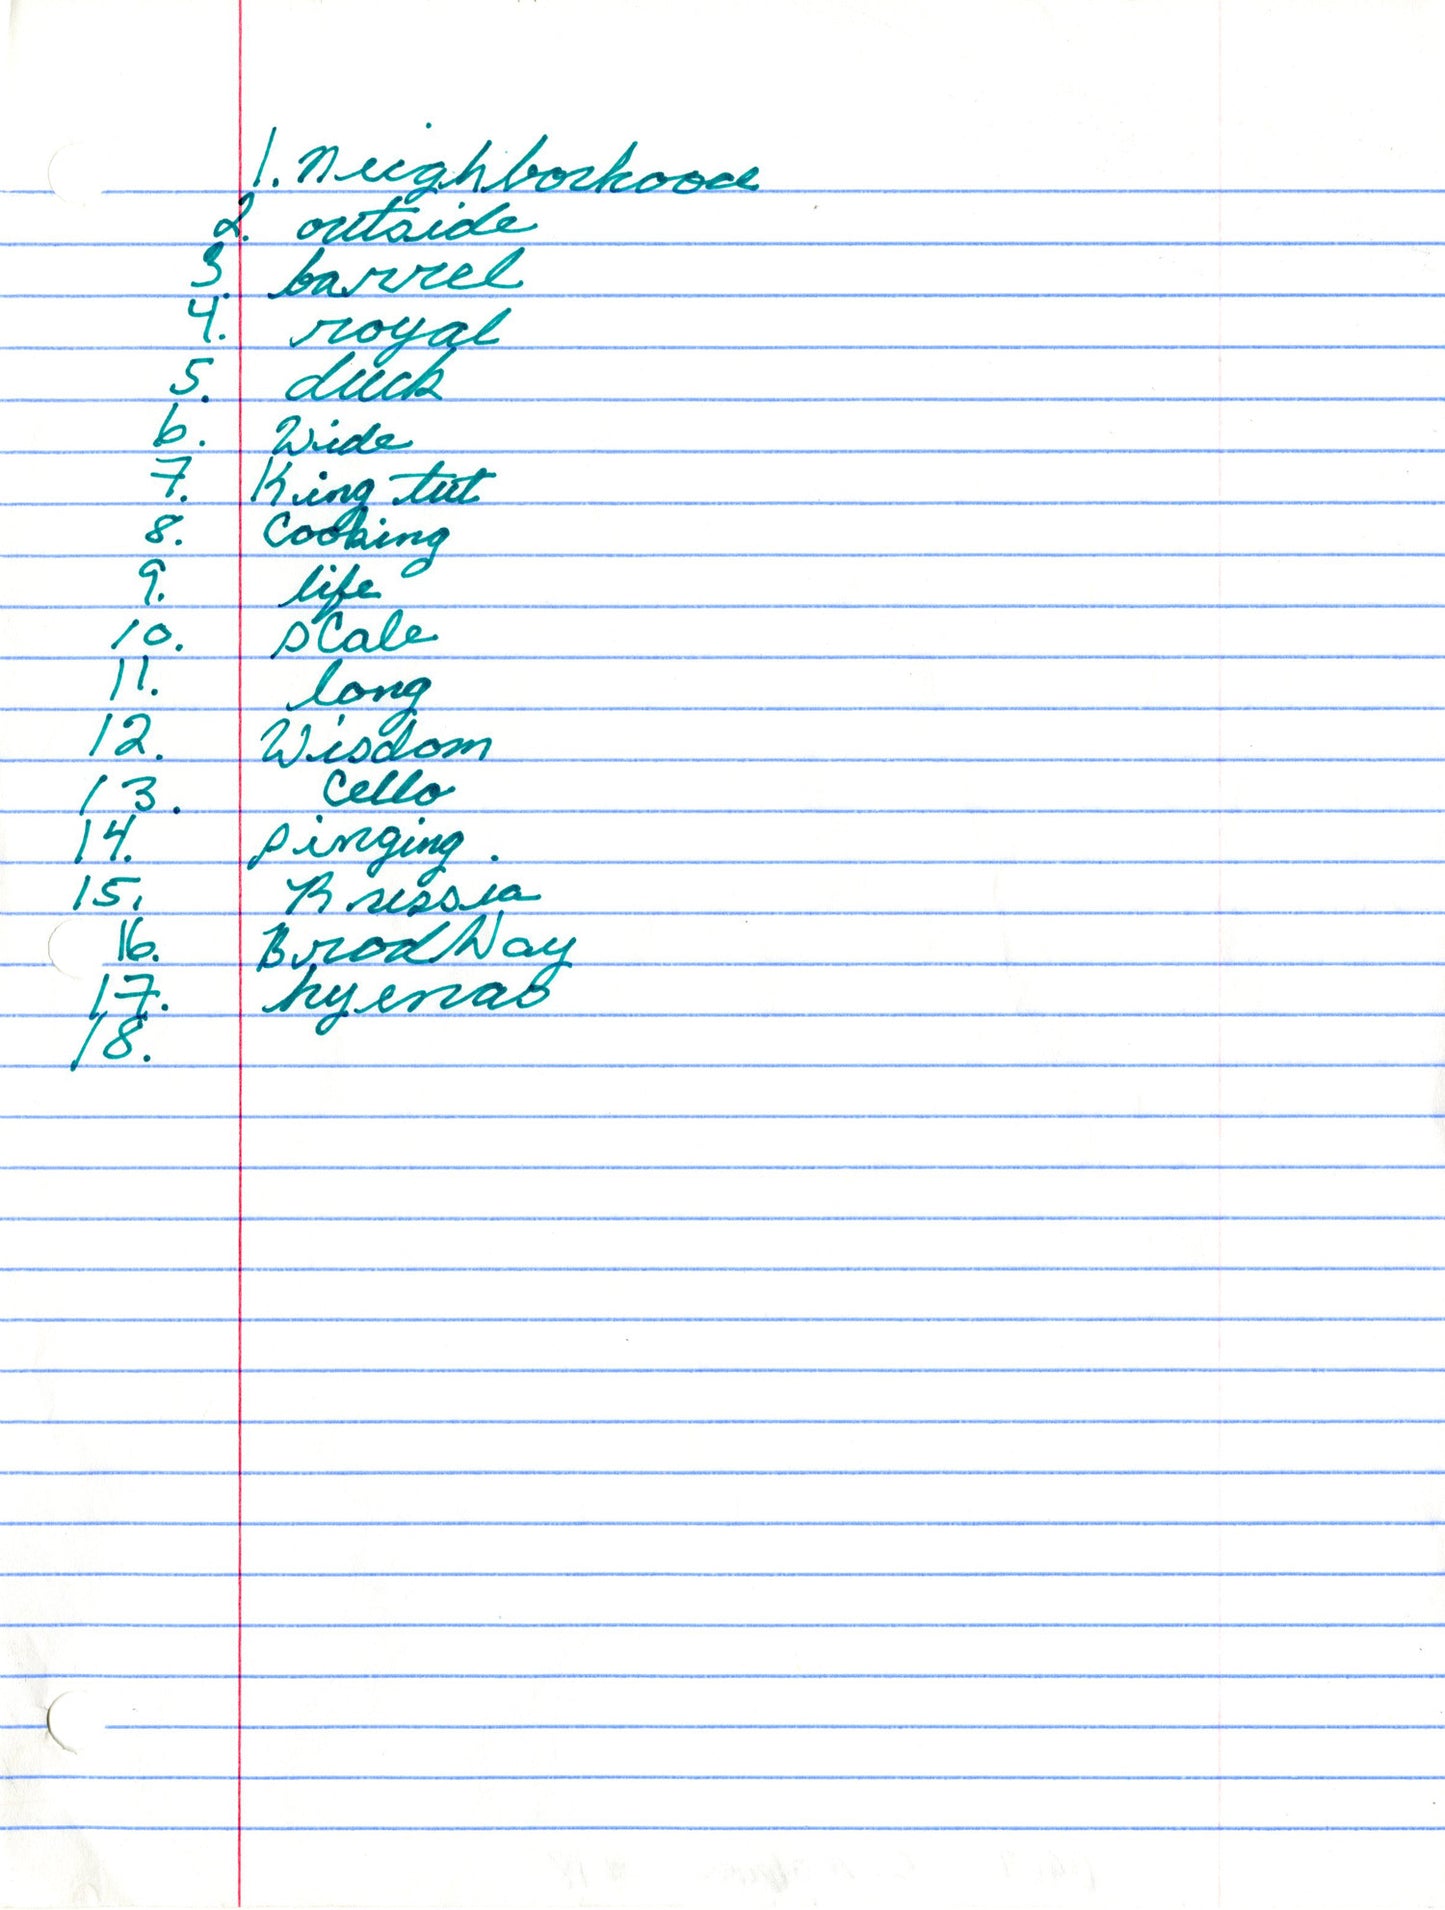 1. Neighborhood
2. outside
3. barrel
4. royal
5. duck
6. Wide
7. King tut
8. Cooking
9. life
10. scale
11. long
12. Wisdom
13. Cello
14. singing.
15. Russia
16. BrodWay
17. hyenas
18.